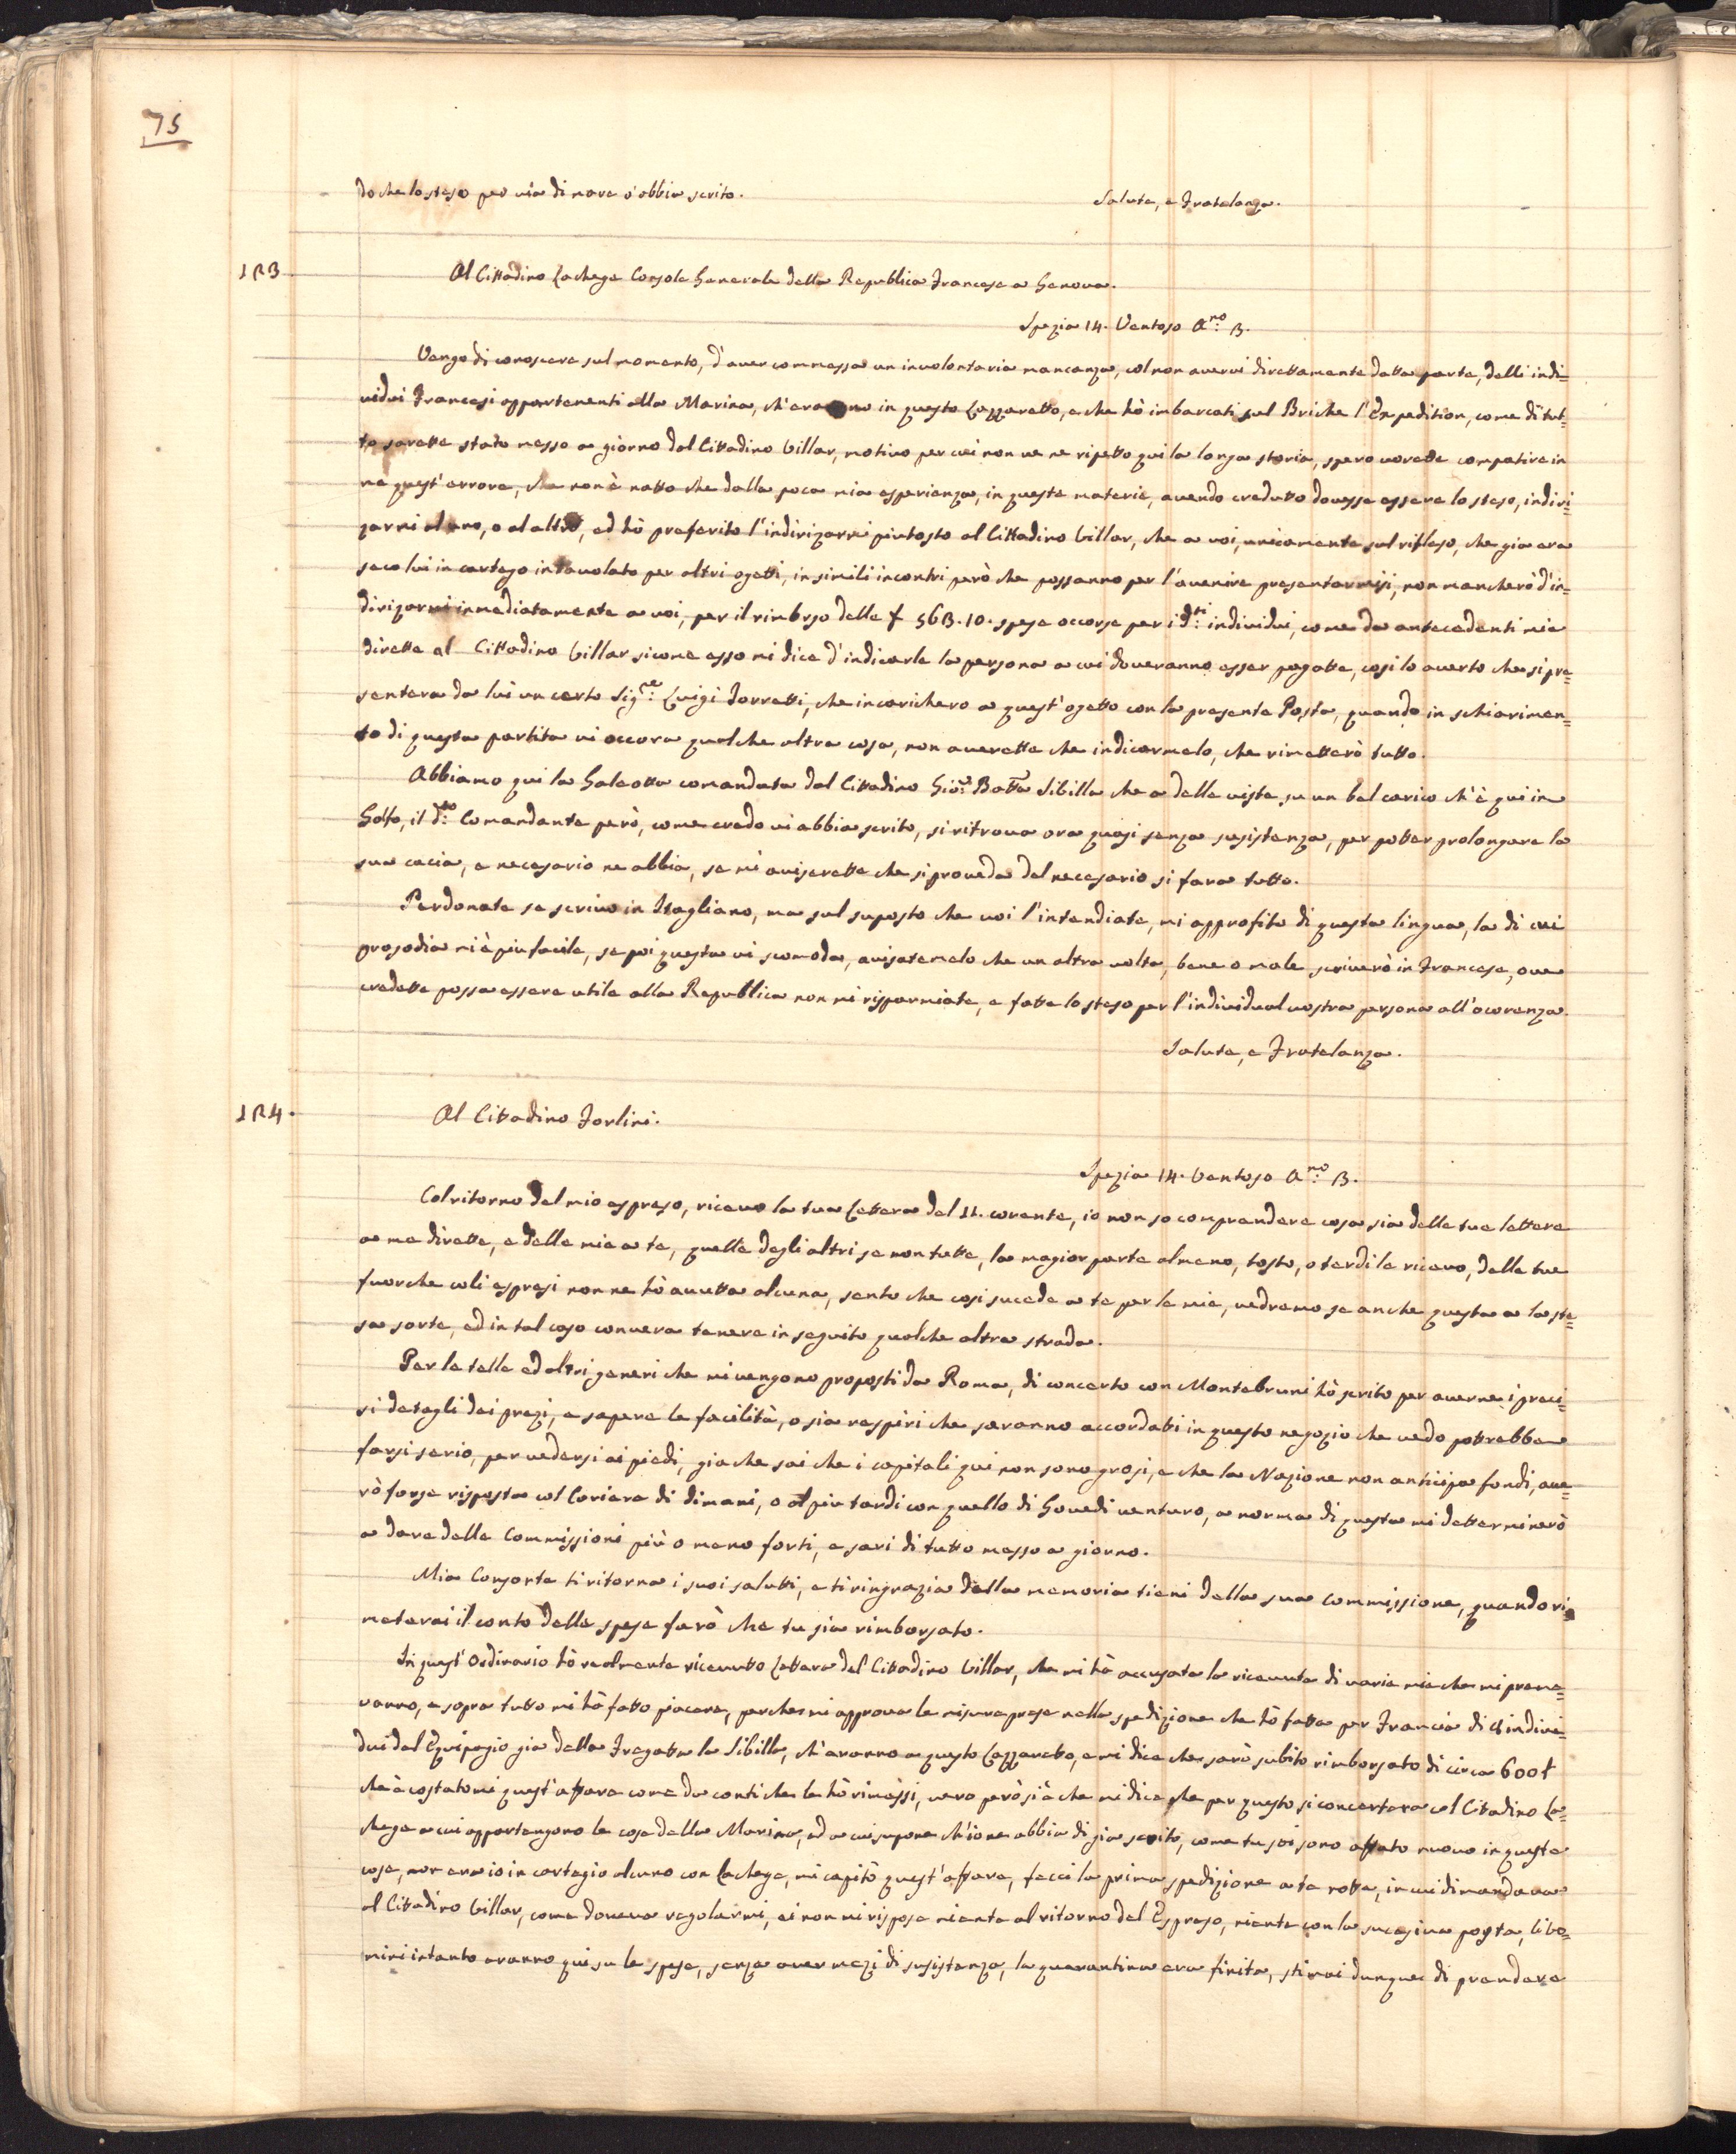 75
do che lo steso per via di mare v'abbia scrito.
Salute, e Fratelanza.
123
Al Cittadino Lachege Console Generale della Republica Francese a Genova.
Spezia 14. Ventoso A.no 3.
Vengo di conoscere sul momento, d'aver commessa un involontaria mancanza, col non avervi direttamente data parte, delli indi=
vidui Francesi appartenenti alla Marina, ch'erano in questo Lazzaretto, e che hò imbarcati sul Briche l'Expedition, come di tut=
to sarette stato messo a giorno dal Cittadino Villar, motivo per cui non ve ne ripetto qui la longa storia, spero vorette compatire in
me quest'errore, che non è natto che dalla poca mia esperienza, in queste materie, avendo credutto dovesse essere lo steso, indiri=
zarmi al uno, o al altro, ed hò preferito l'indirizarmi piutosto al Cittadino Villar, che a voi, unicamente sul rifleso, che gia era
seco lui in cartegio intavolato per altri ogetti, in simili incontri però che possanno per l'avenire presentarmisi, non mancherò d'in=
dirizarmi inmediatamente a voi, per il rimborso delle f 563.10. spese occorse per i d.ti individui, come da antecedenti mie
dirette al Cittadino Villar sicome esso mi dice d'indicarle la persona a cui doveranno esser pagatte, cosi lo averto che si pre=
sentera da lui un certo Sig.re Luigi Torretti, che incarichero a quest'ogetto con la presente Posta, quando in schiarimen=
to di questa partita vi occora qualche altra cosa, non averette che indicarmelo, che rimetterò tutto.
Abbiamo qui la Galeotta comandata dal Cittadino Gio: Batta Sibilla che a delle viste su un bel carico ch'è qui in
Golfo, il d.to Comandante però, come credo vi abbia scrito, si ritrova ora quasi senza susistenza, per potter prolongare la
sua cacia, e necesario ne abbia, se mi aviserette che si proveda del necesario si fara tutto.
Perdonate se scrivo in Itagliano, ma sul suposto che voi l'intendiate, mi approfito di questa lingua, la di cui
prosodia mi è piu facile, se poi questa vi scomoda, avisatemelo che un altra volta, bene o male scriverò in Francese, ove
credette possa essere utile alla Republica non mi risparmiate, e fatte lo steso per l'individual vostra persona all'ocorenza.
Salute, e Fratelanza.
124.
Al Cittadino Forlini.
Spezia 14. Ventoso A.no 3.
Col ritorno del mio espreso, ricevo la tua Lettera del 11. corente, io non so comprendere cosa sia delle tue lettere
a me dirette, e delle mie a te, quelle degli altri se non tutte, la magior parte almeno, tosto, o tardi le ricevo, delle tue
fuorche coli espresi non ne hò avutta alcuna, sento che cosi sucede a te per le mie, vedremo se anche questa a la ste=
sa sorte, ed in tal caso convera tenere in seguito qualche altra strada.
Per le telle ed altri generi che mi vengono proposti da Roma, di concerto con Montebruni hò scrito per averne i preci=
si detagli dei prezi, e sapere le facilità, o sia respiri che saranno accordati in questo negozio che vedo potrebbe
farsi serio, per vedersi ai piedi, gia che sai che i capitali qui non sono grosi, e che la Nazione non anticipa fondi, ave=
rò forse risposta col Coriere di dimani, o al piu tardi con quello di Govedi venturo, a norma di questa mi determinerò
a dare delle Commissioni più o meno forti, e sari di tutto messo a giorno.
Mia Consorte ti ritorna i suoi salutti, e ti ringrazia della memoria tieni della sua commissione, quando ri=
meterai il conto delle spese farò che tu sia rimborsato.
In quest'Ordinario hò realmente ricevutto Lettera del Cittadino Villar, che mi hà accusata la ricevuta di varie mie che mi preme=
vanno, e sopra tutto mi hà fatto piacere, perche mi approva le misure prese nella spedizione che hò fatta per Francia di indivi=
dui dal Equipagio gia della Fregatta la Sibilla, ch'eranno a questo Lazzaretto, e mi dice che sarò subito rimborsato di circa 600 f
che à costatomi quest'affare come da conti che le hò rimessi, vero però si è che mi dice che per questo si concertera col Cittadino La=
chege a cui appartengono le cose della Marina, ed a cui supone ch'io ne abbia di gia scrito, come tu sai sono affato nuovo in queste
cose, non era io in cartegio alcuno con Lachege, mi capitò quest'affare, fecci la prima spedizione a te notta, in cui dimandava
al Cittadino Villar, come doveva regolarmi, ei non mi rispose niente al ritorno del Espreso, niente con la sucesiva posta, li vo=
mini intanto eranno qui su le spese, senza aver mezi di susistenza, la quarantina era finita, stimai dunque di prendere